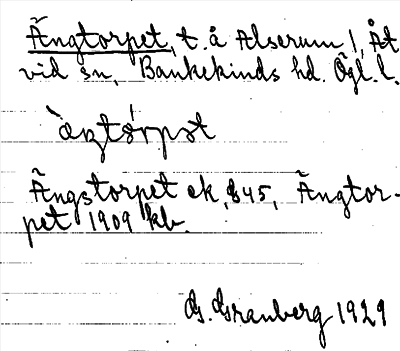 Ängtorpet, t. å Alserum 1, Åt
vid sn, Bankekinds hd. Ögl. l.
`æŋtɷ́rpət
Ängstorpet ek, 845, Ängtor-
pet 1909 kb.
G. Granberg 1929